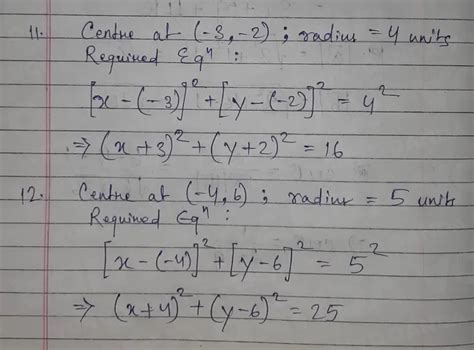 11. Centre at (-3,-2) ; radius = 4 units
Required Eqⁿ :
[x-(-3)]² + [y-(-2)]² = 4²
⇒ (x+3)² + (y+2)² = 16
12. Centre at (-4,6) ; radius = 5 units
Required Eqⁿ :
[x-(-4)]² + [y-6]² = 5²
⇒ (x+4)² + (y-6)² = 25